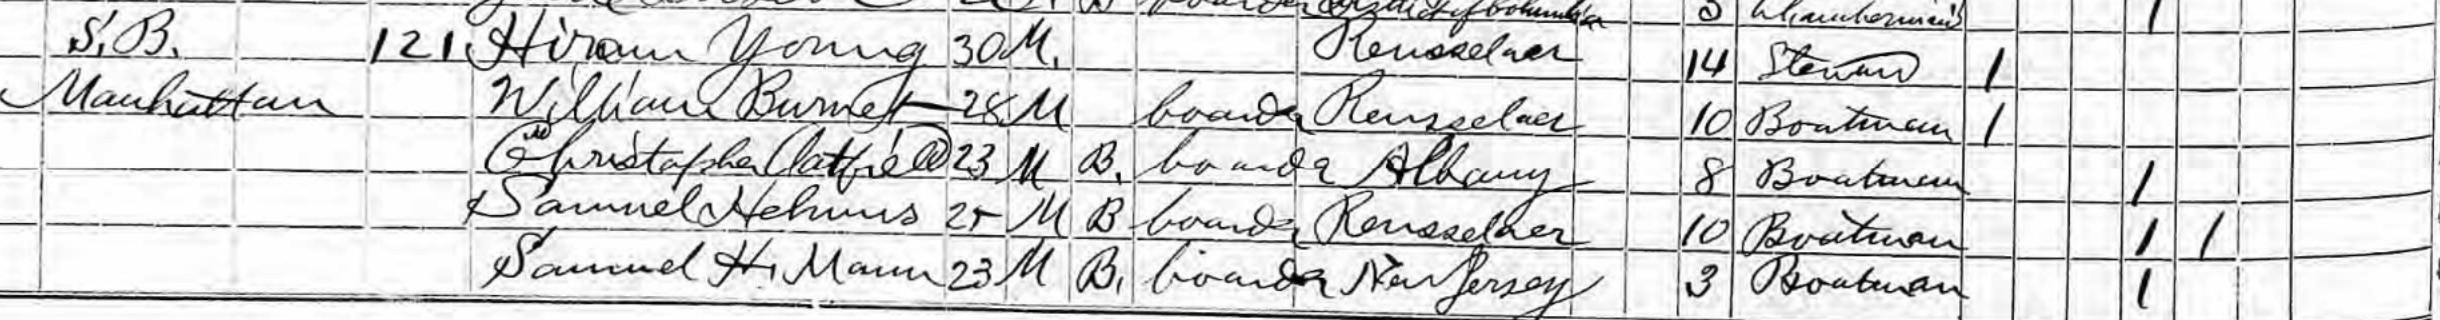 B boarder District of Columbia 3
S.B. 121 Hiram Young 30 M. Rensselaer 14 Steward 1
Manhattan William Burnet 28 M boarder Rensselaer 10 Boatman 1
Christopher Hatfield 23 M B. boarder Albany 8 Boatman 1
Samuel 25 M B boarder Rensselaer 10 Boatman 1 1
Samuel H. Mann 23 M B. boarder New Jersey 3 Boatman 1